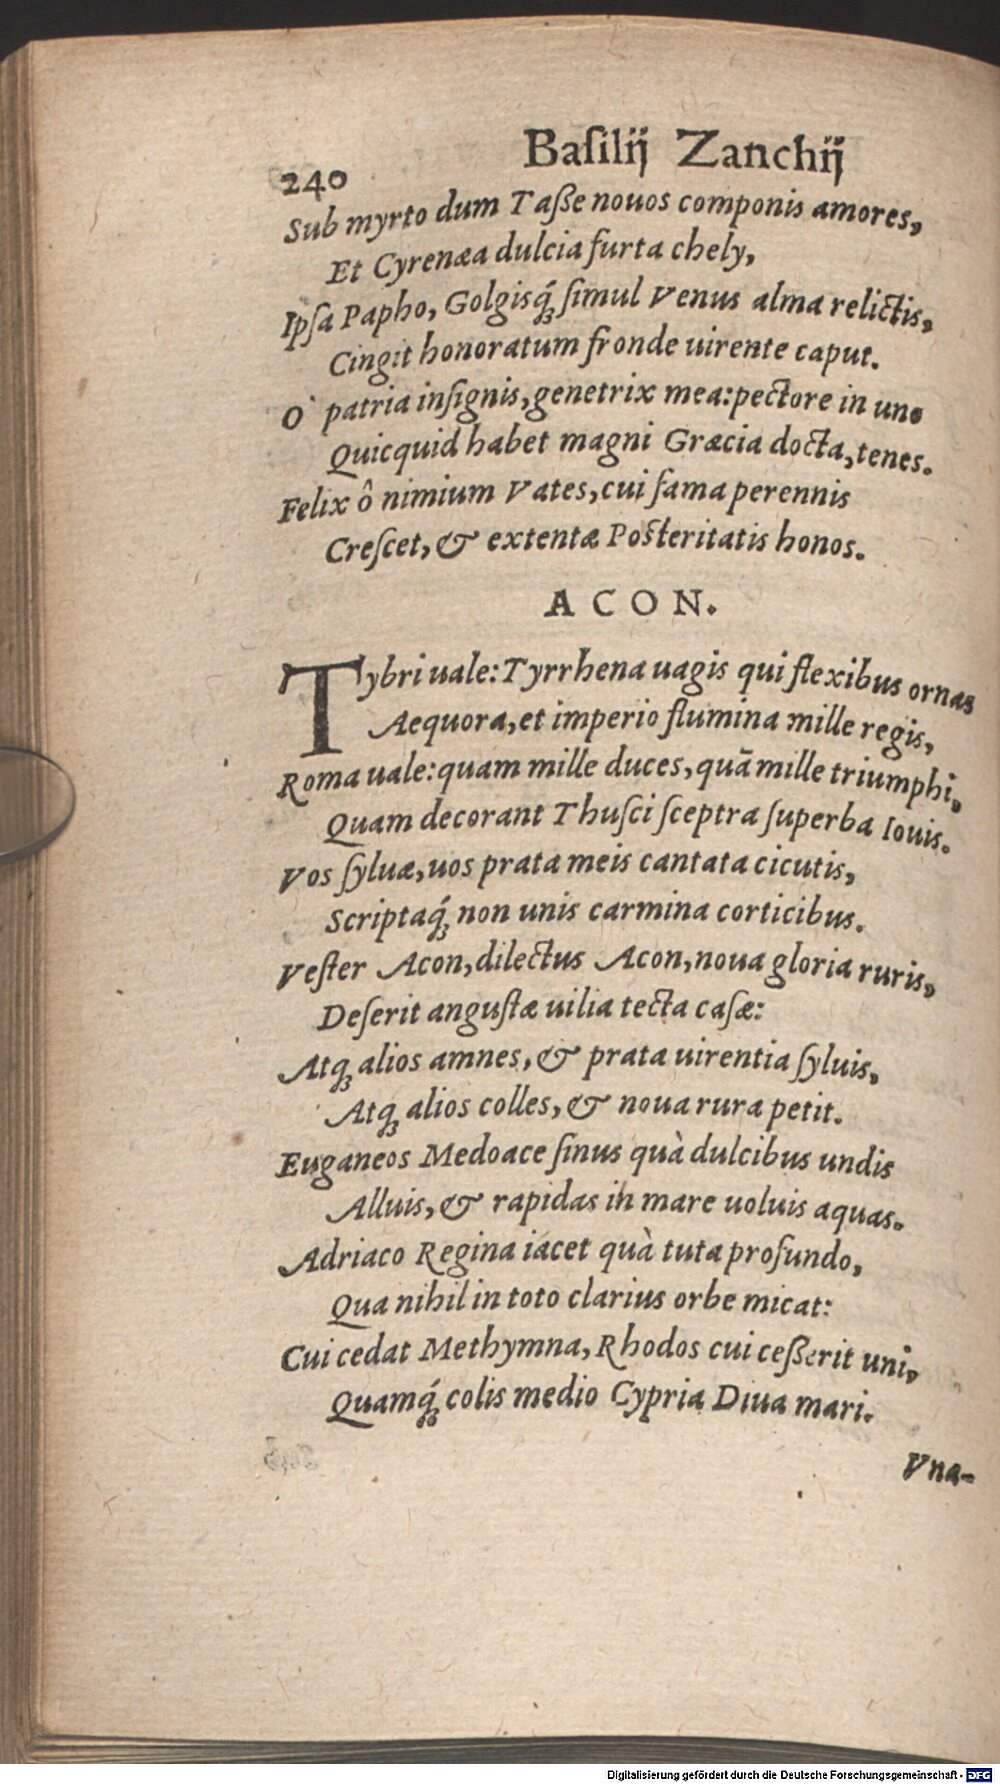 240 Baſilij Zanchij
Sub myrto dum Taſſe nouos componis amores,
Et Cyrenæa dulcia furta chely,
Ipſa Papho, Golgisq́ꝫ ſimul Venus alma relictis,
Cingit honoratum fronde uirente caput.
O` patria inſignis, genetrix mea: pectore in uno
Quicquid habet magni Græcia docta, tenes.
Felix ô nimium Vates, cui fama perennis
Creſcet, & extentæ Poſteritatis honos.
ACON.
Tybri uale: Tyrrhena uagis qui flexibus ornas
Aequora, et imperio flumina mille regis,
Roma uale: quam mille duces, quā mille triumphi,
Quam decorant Thuſci ſceptra ſuperba Iouis.
Vos ſyluæ, uos prata meis cantata cicutis,
Scriptaq́ꝫ non unis carmina corticibus.
Veſter Acon, dilectus Acon, noua gloria ruris,
Deſerit anguſtæ uilia tecta caſæ:
Atqꝫ alios amnes, & prata uirentia ſyluis,
Atqꝫ alios colles, & noua rura petit.
Euganeos Medoace ſinus quà dulcibus undis
Alluis, & rapidas in mare uoluis aquas.
Adriaco Regina iacet quà tuta profundo,
Qua nihil in toto clarius orbe micat:
Cui cedat Methymna, Rhodos cui ceſſerit uni,
Quamq́ꝫ colis medio Cypria Diua mari.
Vna-
Digitalisierung gefördert durch die Deutsche Forschungsgemeinschaft - DFG